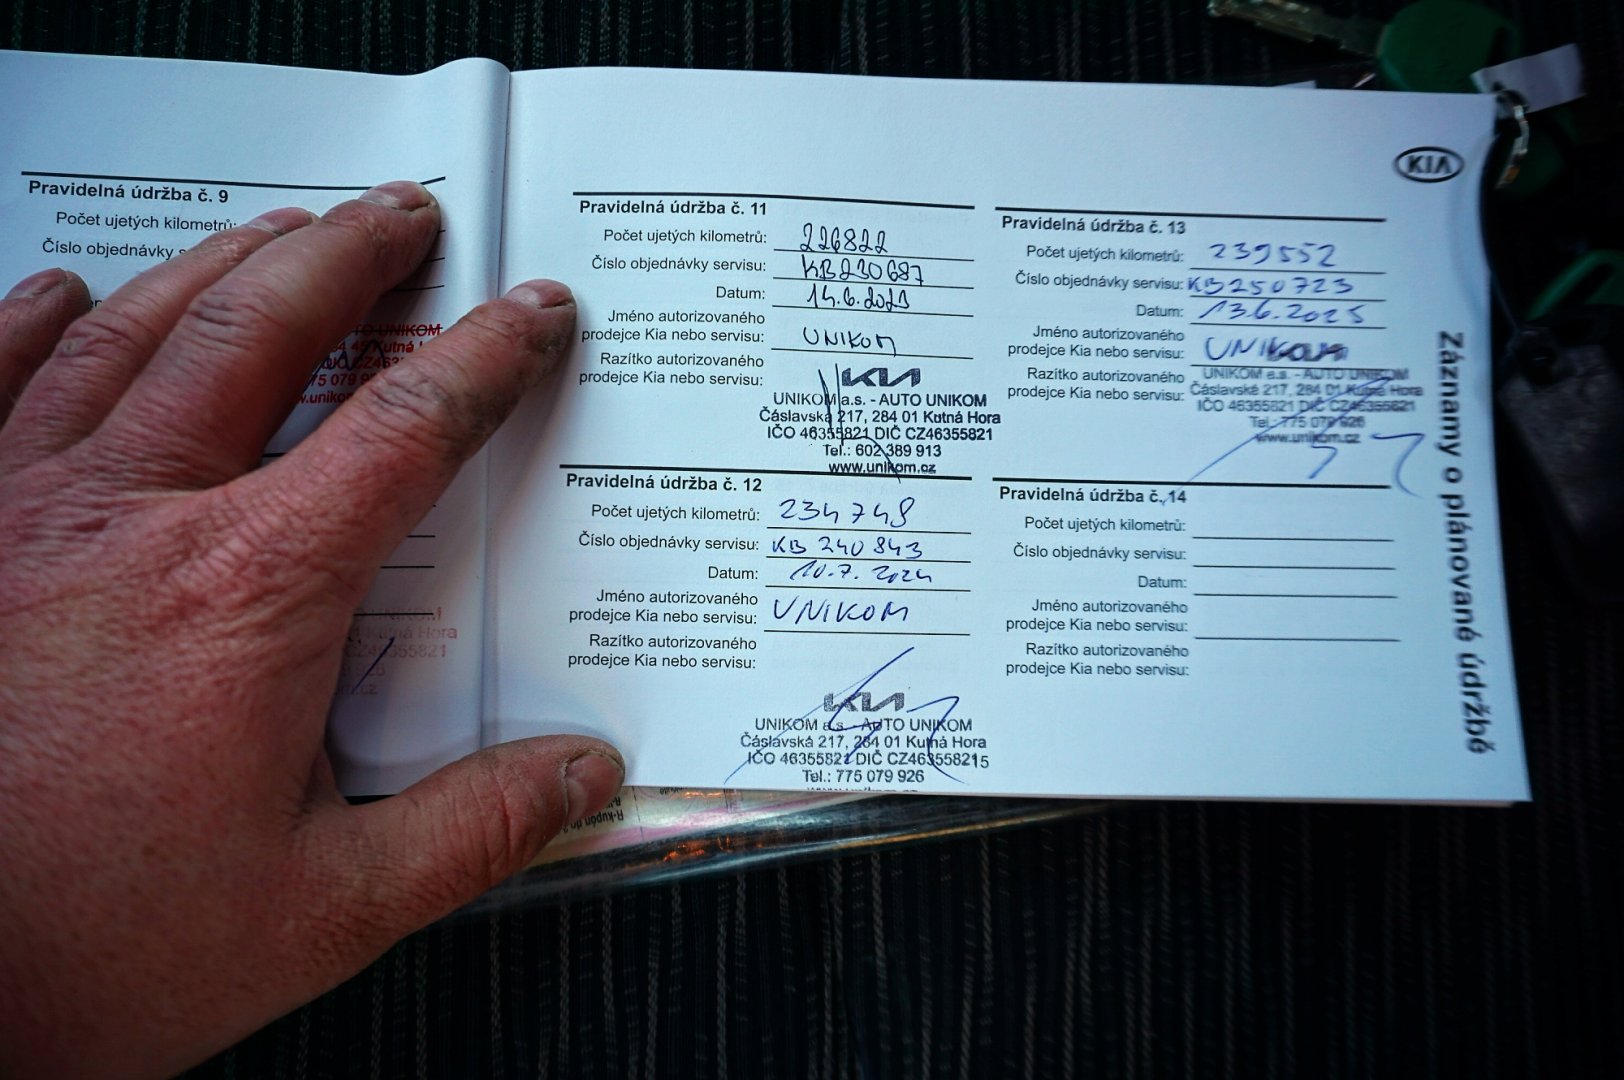 Pravidelná údržba č. 9
Počet ujetých kilometrů:
Číslo objednávky
UNIKOM
Kutná
75 079
Kutná Hora
355821
Pravidelná údržba č. 11
Počet ujetých kilometrů: 226822
Číslo objednávky servisu: KB230687
Datum: 14.6.2023
Jméno autorizovaného
prodejce Kia nebo servisu: UNIKOM
Razítko autorizovaného
prodejce Kia nebo servisu:
KIA
UNIKOM a.s. - AUTO UNIKOM
Čáslavská 217, 284 01 Kutná Hora
IČO 46355821 DIČ CZ46355821
Tel.: 602 389 913
www.unikom.cz
Pravidelná údržba č. 12
Počet ujetých kilometrů: 234748
Číslo objednávky servisu: KB 240843
Datum: 10.7.2024
Jméno autorizovaného
prodejce Kia nebo servisu: UNIKOM
Razítko autorizovaného
prodejce Kia nebo servisu:
KIA
UNIKOM a.s. - AUTO UNIKOM
Čáslavská 217, 284 01 Kutná Hora
IČO 46355821 DIČ CZ463558215
Tel.: 775 079 926
KIA
Pravidelná údržba č. 13
Počet ujetých kilometrů: 239552
Číslo objednávky servisu: KB250723
Datum: 13.6.2025
Jméno autorizovaného
prodejce Kia nebo servisu: UNIKOM
Razítko autorizovaného
prodejce Kia nebo servisu:
UNIKOM a.s. - AUTO UNIKOM
Čáslavská 217, 284 01 Kutná Hora
IČO 46355821 DIČ CZ46355821
Tel.: 775 079 926
www.unikom.cz
Pravidelná údržba č. 14
Počet ujetých kilometrů:
Číslo objednávky servisu:
Datum:
Jméno autorizovaného
prodejce Kia nebo servisu:
Razítko autorizovaného
prodejce Kia nebo servisu:
Záznamy o plánované údržbě